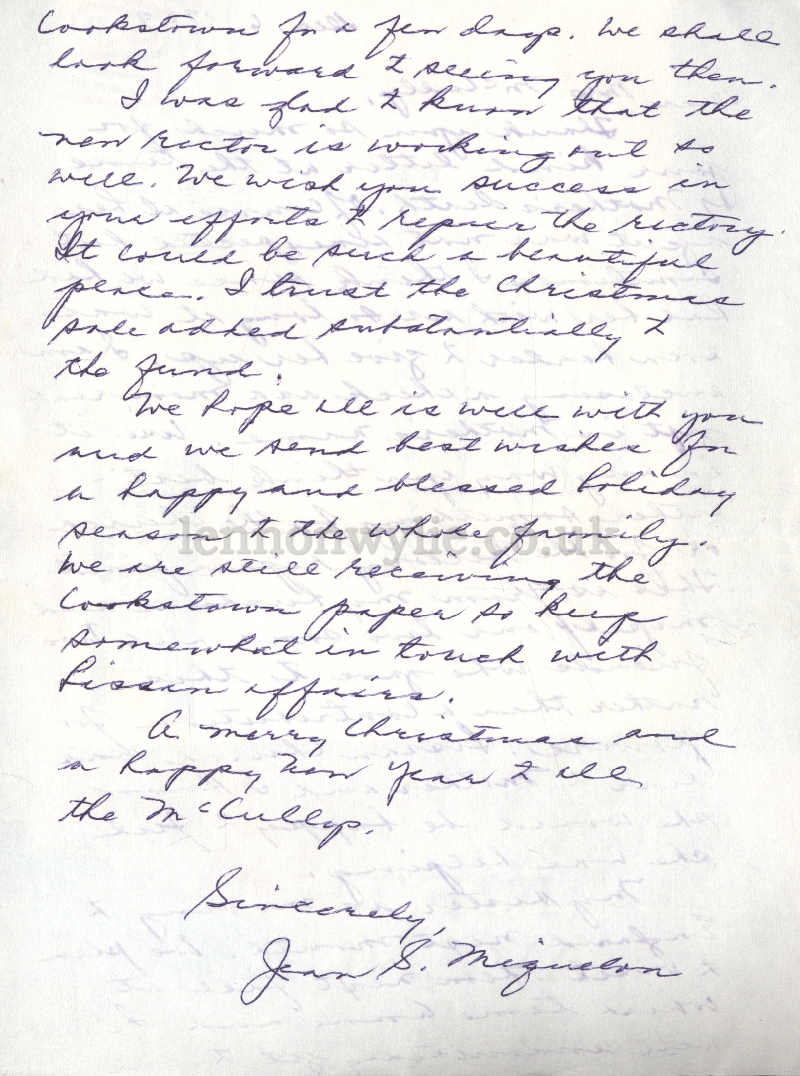 Cookstown for a few days. We shall
look forward to seeing you then.
I was glad to know that the
new rector is working out so
well. We wish you success in
your efforts to repair the rectory.
It could be such a beautiful
place. I trust the Christmas
sale added substantially to
the fund.
We hope all is well with you
and we send best wishes for
a happy and blessed holiday
season to the whole family.
lennonwylie.co.uk
We are still receiving the
Cookstown paper so keep
somewhat in touch with
Lissan affairs.
A merry Christmas and
a happy New Year to all
the McCullys.
Sincerely,
Jean S. Miquelon